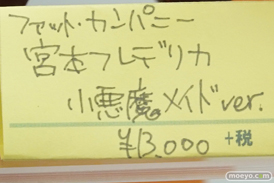 ファット・カンパニー
宮本フレデリカ
小悪魔メイドver.
¥13,000 +税
moeyo.com